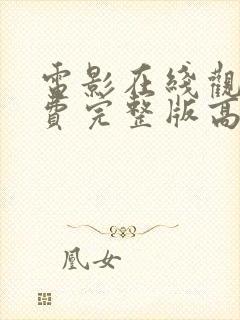 電影在綫觀
費完整版高
凰女